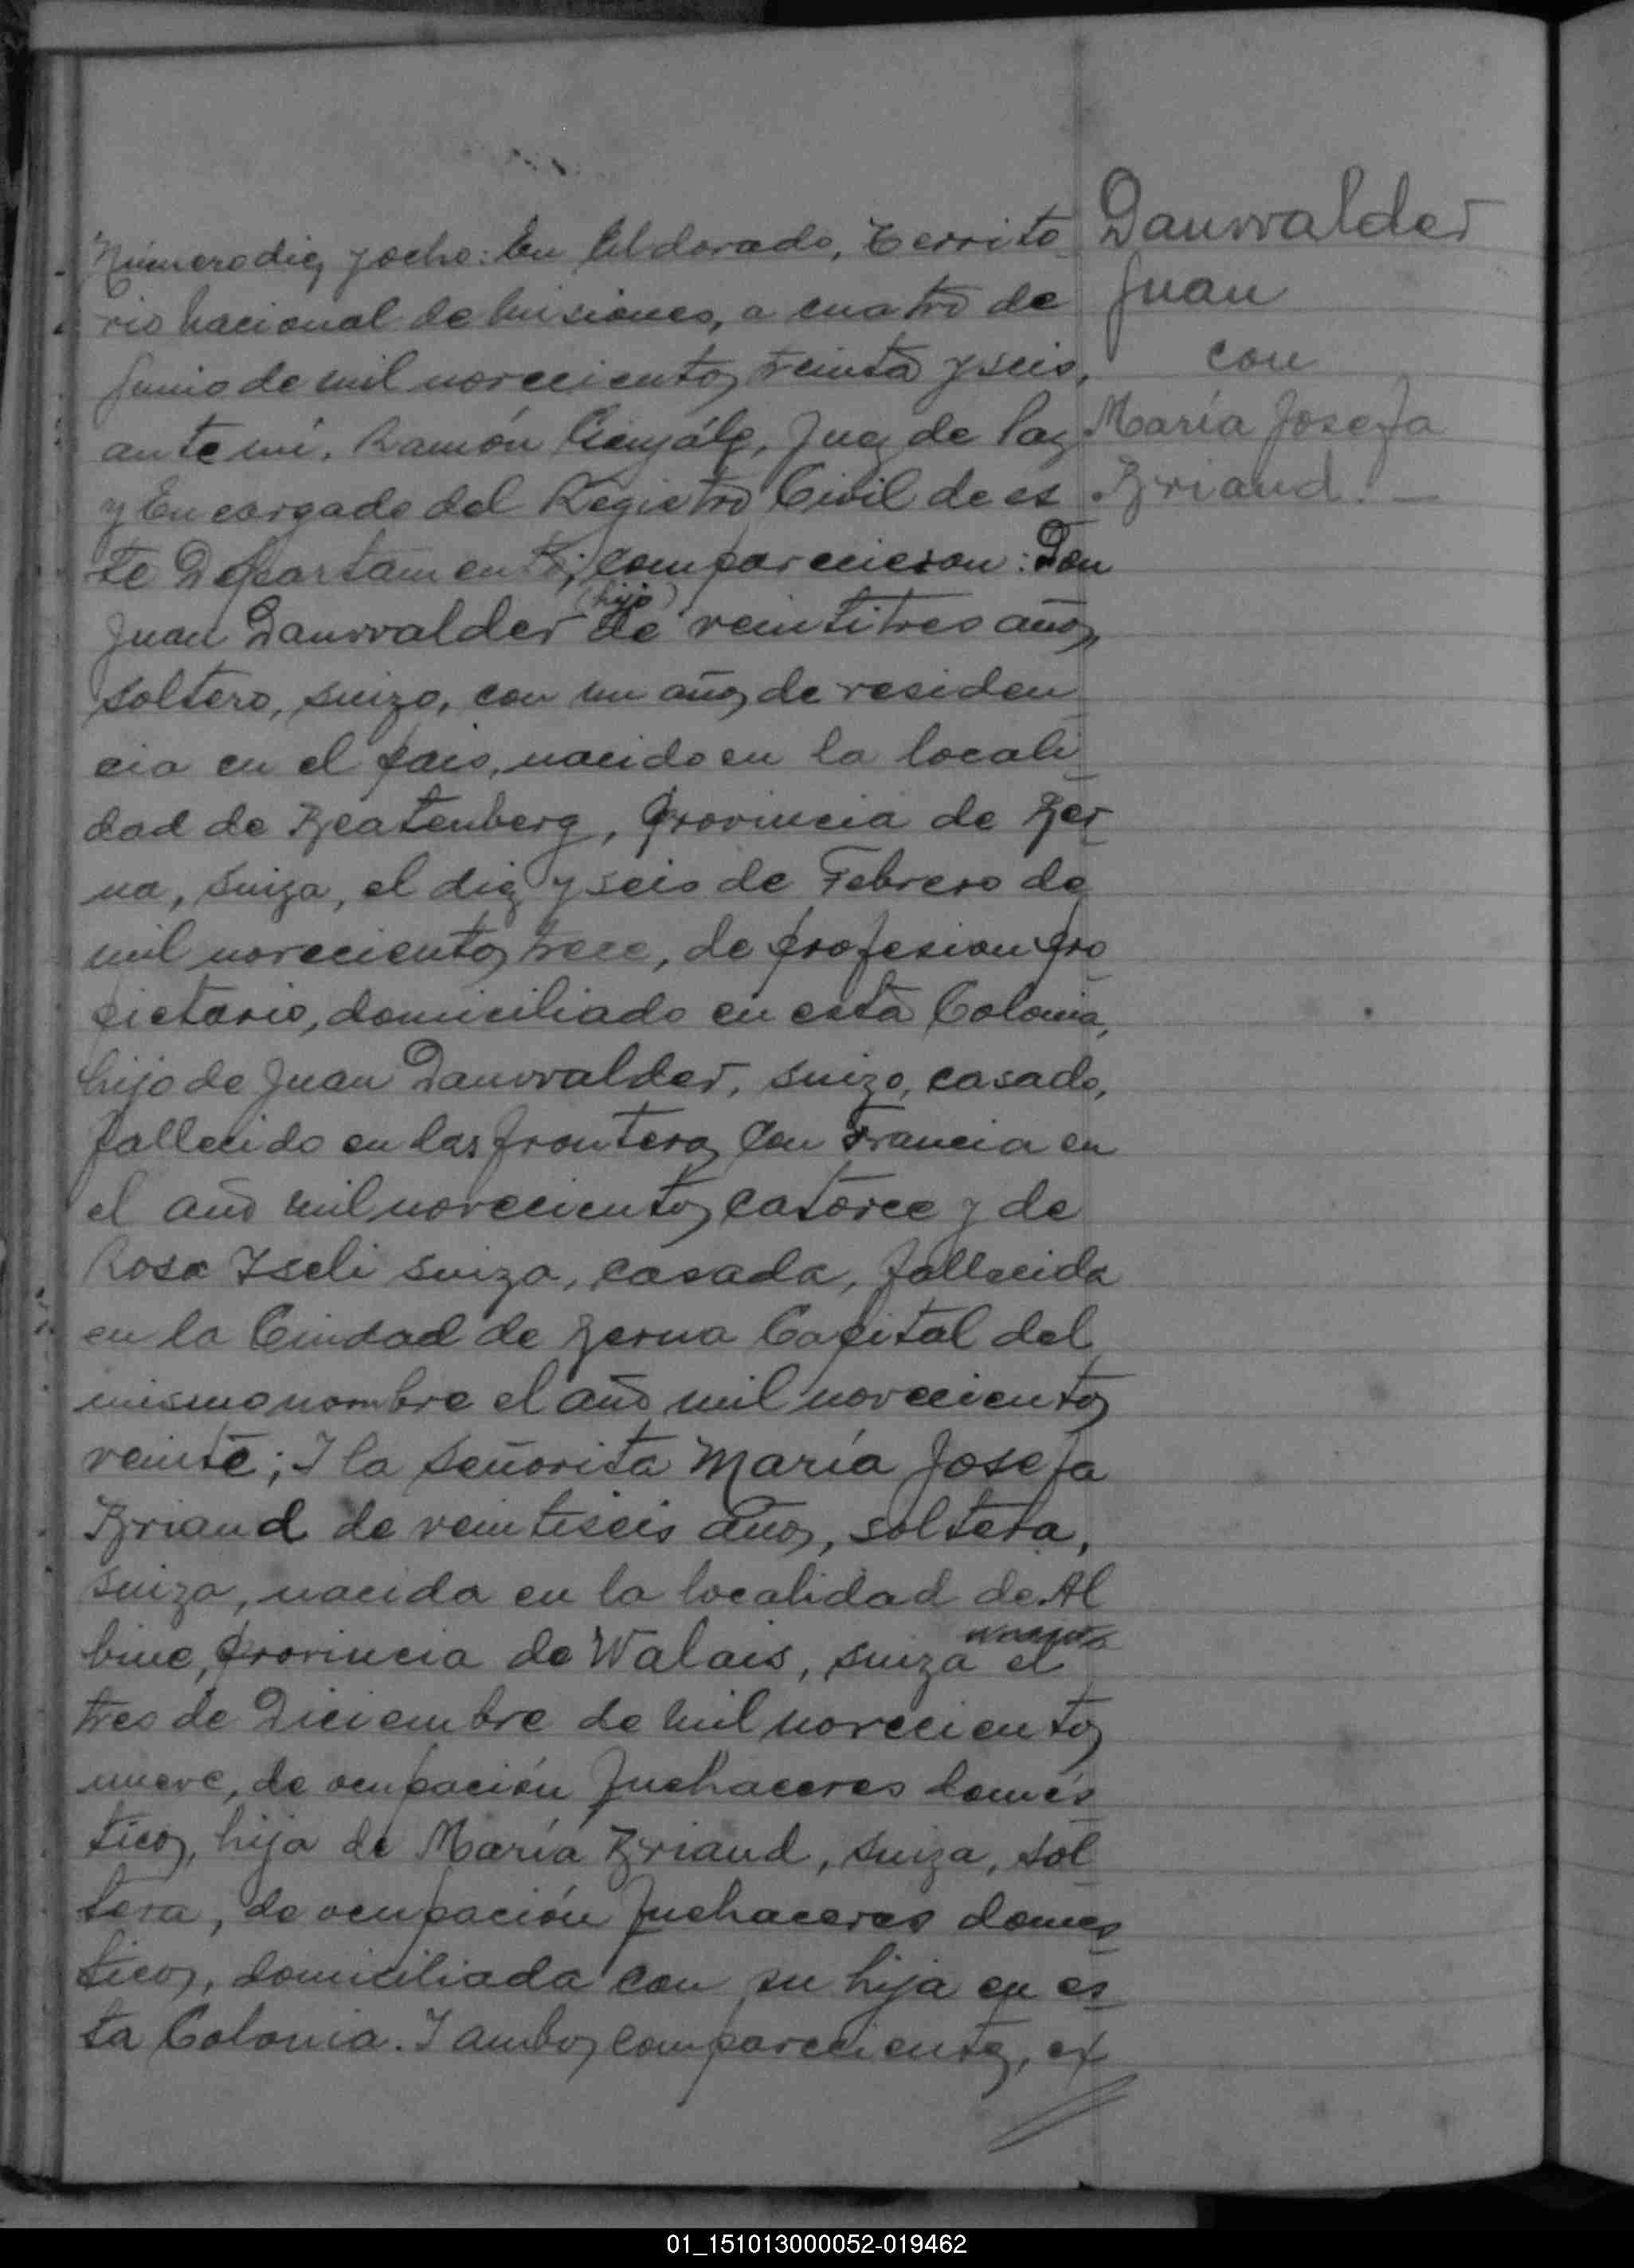 Número diez y ocho: En Eldorado, Territo
rio nacional de Misiones, a cuatro de
Junio de mil novecientos treinta y seis,
ante mí, Ramón González, Juez de Paz
y Encargado del Registro Civil de es
te Departamento, comparecieron: Don
(hijo)
Juan Danwalder de veintitres años,
soltero, suizo, con un años de residen
cia en el pais, nacido en la locali
dad de Beatenberg, Provincia de Ber
na, Suiza, el diez y seis de Febrero de
mil novecientos trece, de profesion pro
pietario, domiciliado en esta Colonia,
hijo de Juan Danwalder, suizo, casado,
fallecido en las fronteras con Francia en
el año mil novecientos catorce y de
Rosa Iseli suiza, casada, fallecida
en la Ciudad de Berna Capital del
mismo nombre el año mil novecientos
veinte; I la Señorita María Josefa
Briand de veintiseis años, soltera,
suiza, nacida en la localidad de Al
bine, Provincia de Walais, suiza el
tres de Diciembre de mil novecientos
nueve, de ocupación Quehaceres domés
ticos, hija de María Briand, suiza, sol
tera, de ocupación Quehaceres domes
ticos, domiciliada con su hija en es
ta Colonia. I ambos comparecientes, ex
Danwalder
Juan
con
María Josefa
Briand. —
01_151013000052-019462